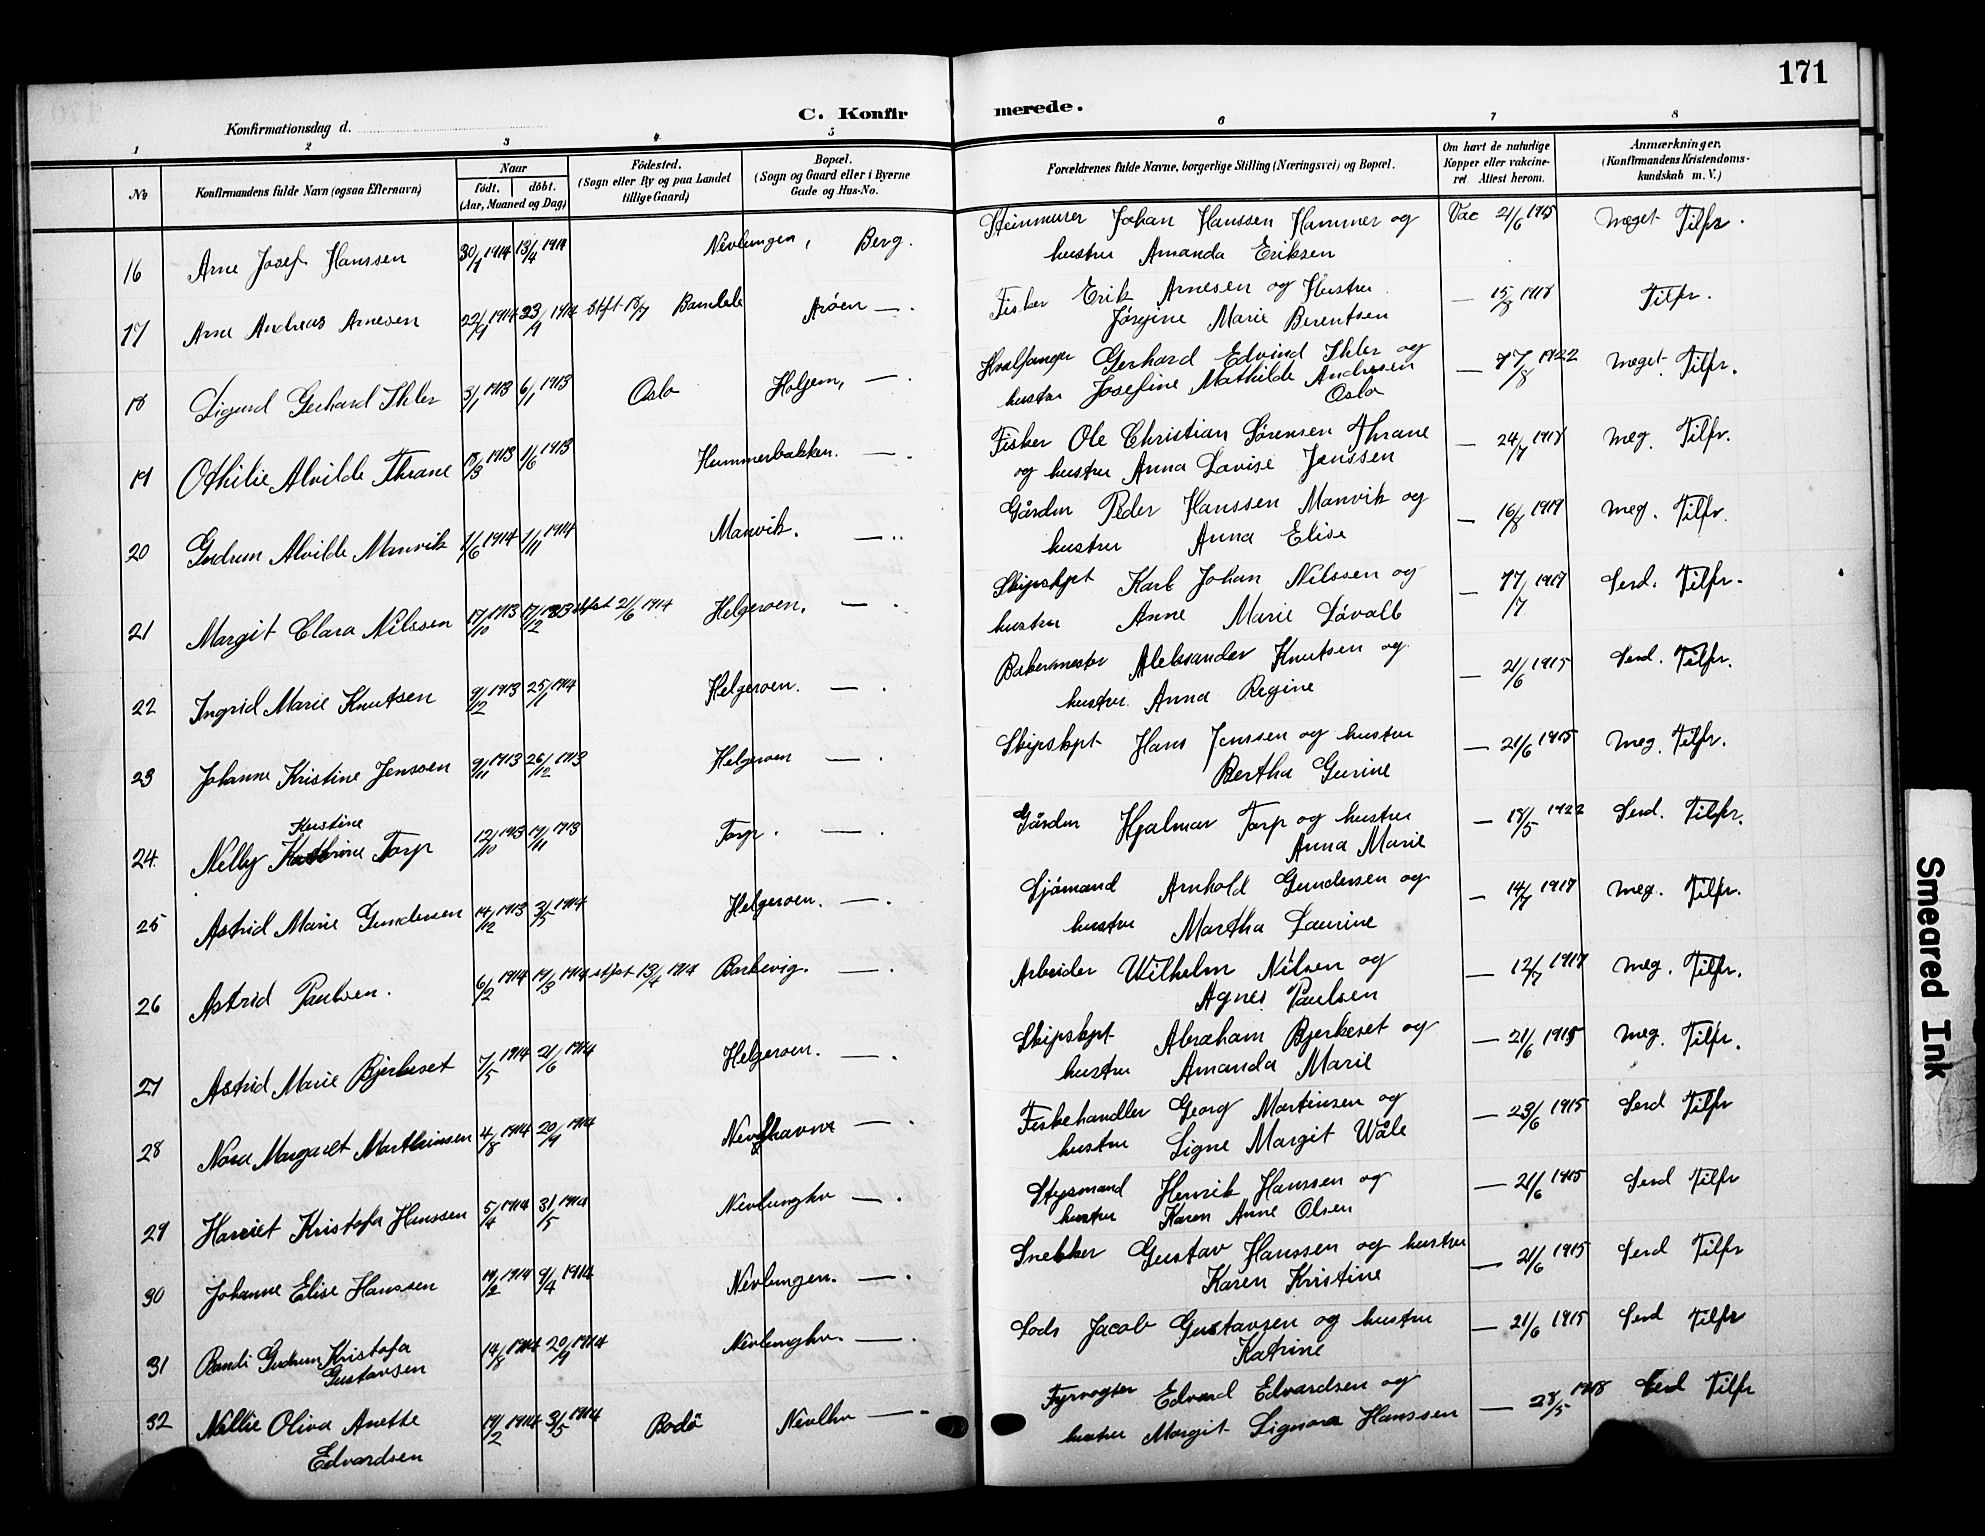 171
C. Konfirmerede.
Konfirmationsdag d.
1 2 3 4 5 6 7 8
No
Konfirmandens fulde Navn (ogsaa Efternavn)
Naar
født. døbt.
(Aar, Maaned og Dag)
Fødested.
(Sogn eller By og paa Landet
tillige Gaard)
Bopæl.
(Sogn og Gaard eller i Byerne
Gade og Hus-No.
Forældrenes fulde Navne, borgerlige Stilling (Næringsvei) og Bopæl.
Om havt de naturlige
Kopper eller vakcine-
ret Attest herom.
Anmærkninger.
(Konfirmandens Kristendoms-
kundskab m. V.)
16 Arne Josef Hanssen 30/1 1914 13/4 1914 Nevlungen, Berg. Steinmurer Johan Hanssen Hammer og Vac 21/6 1915 Meget Tilfr.
hustru Amanda Eriksen
17 Arne Andreas Arnesen 1914 1914 stfst Bamble Arøen — . Fisker Erik Arnesen og Hustru — 15/8 1918 Tilfr.
Jørgine Marie Berentsen
18 Sigurd Gerhard Ihler 3/1 1913 6/1 1913 Oslo Holjem, — . Hvalfanger Gerhard Edvind Ihler og — 1922 Meget Tilfr.
hustru Josefine Mathilde Andresen
Oslo
19 Othilie Alvilde Thrane 1913 1/6 1913 Hummerbakken. — . Fisker Ole Christian Sørensen Thrane — 24/7 1918 Meg. Tilfr.
og hustru Anna Lovise Janssen
20 Gudrun Alvilde Manvik 1/6 1914 1/11 1914 Manvik. — .. Gårdbr Peder Hanssen Manvik og — 16/8 1919 Meg. Tilfr.
hustru Anna Elise
21 Margit Clara Nilssen 17/10 1913 17/12 1913 stfst 21/6 1914 Helgeroen. — . Skipskpt Karl Johan Nilssen og — 17/7 1917 Serd. Tilfr.
hustru Anne Marie Løvall
22 Ingrid Marie Knutsen 9/12 1913 25/1 1914 Helgeroen. — . Bakermester Aleksander Knutsen og — 21/6 1915 Serd. Tilfr.
hustru Anna Regine
23 Johanne Kristine Jenssen 9/11 1913 26/12 1913 Helgeroen — . Skipskpt Hans Jenssen og hustru — 21/6 1915 Meg. Tilfr.
Bertha Gurine
Kristine
24. Nelly Torp 12/10 1913 1913 Torp. — . Gårdbr Hjalmar Torp og hustru — 18/5 1922 Serd. Tilfr.
Anna Marie
25 Astrid Marie Gundersen 14/12 1913 3/5 1914 Helgeroen. — . Sjømand Arnhold Gundersen og — 14/7 1917 Meg. Tilfr.
hustru Martha Laurine
26 Astrid Paulsen. 6/2 1914 19/3 1914 stfst 13/4 1914 Barkevig. — . Arbeider Wilhelm Nilsen og — 12/7 1917 Meg. Tilfr.
Agnes Paulsen
27 Astrid Marie Bjerkeset 7/5 1914 21/6 1914 Helgeroen. — . Skipskpt Abraham Bjerkeset og — 21/6 1915 Meg. Tilfr.
hustru Amanda Marie
28 Nora Margaret Marthinsen 4/8 1914 20/9 1914 — . Fiskehandler Georg Martinsen og — 23/6 1915 Serd Tilfr
hustru Signe Margit Wåle
29 Harriet Kristofa Hanssen 5/4 1914 31/5 1914 Nevlunghv — . Styrmand Henrik Hanssen og — 21/6 1915 Serd Tilfr
hustru Karen Anne Olsen
30 Johanne Elise Hanssen 19/2 1914 9/4 1914 Nevlungen. — . Snekker Gustav Hanssen og hustru — 21/6 1915 Serd Tilfr
Karen Kristine
31 Randi Gudrun Kristofa 14/8 1914 20/9 1914 Nevlunghv. — . Lods Jacob Gustavsen og hustru — 21/6 1915 Serd Tilfr
Gustavsen
Katrine
32 Nellie Oliva Anette 19/2 1914 3/5 1914 Bodø Nevlhv — .. Fyrvogter Edvard Edvardsen og — 28/5 1918 Serd Tilfr
Edvardsen
hustru Margit Signora Hanssen
Smeared Ink